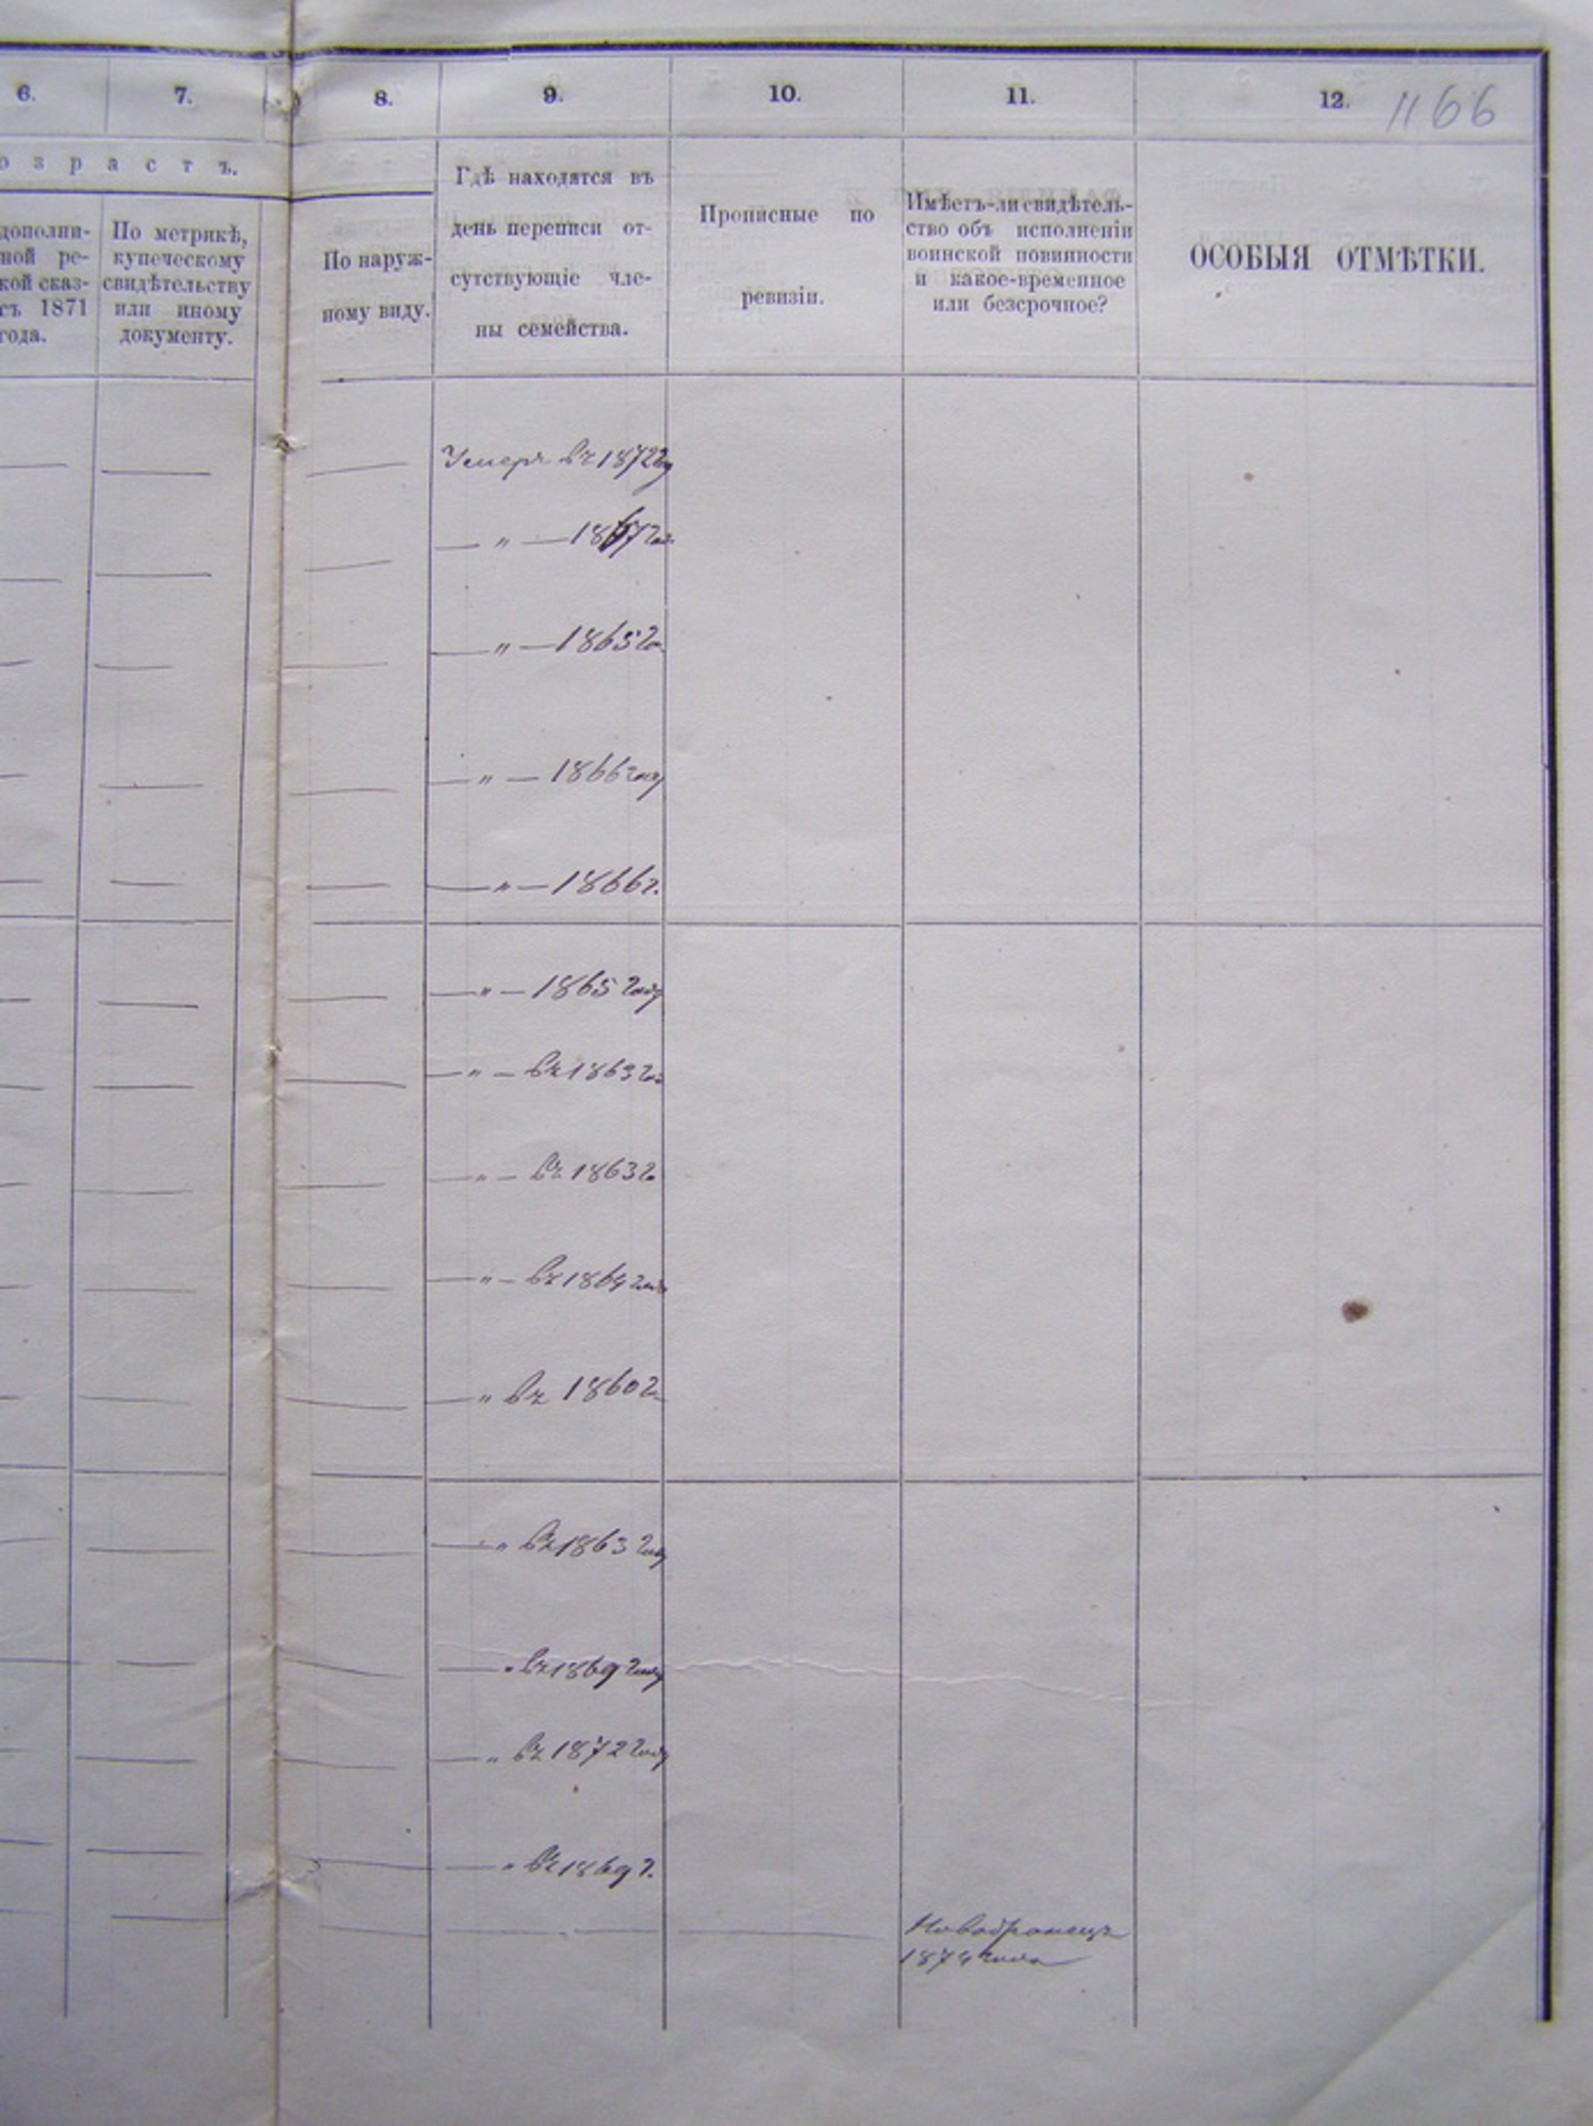 6. 7. 8. 9. 10. 11. 12. 1166
озрастъ.
дополни-
ной ре-
кой сказ-
съ 1871
года.
По метрикѣ,
купеческому
свидѣтельству
или иному
документу.
По наруж-
ному виду.
Гдѣ находятся въ
день переписи от-
сутствующіе чле-
ны семейства.
Прописные по
ревизіи.
Имѣетъ-ли свидѣтель-
ство объ исполненіи
воинской повинности
и какое-временное
или безсрочное?
ОСОБЫЯ ОТМѢТКИ.
Умеръ въ 1872 году
— „ — 1867 год.
— „ — 1865 го.
— „ — 1866 году
— „ — 1866 г.
— „ — 1865 году
— „ — въ 1863 го
— „ — въ 1863 го
— „ — въ 1864 году
— „ въ 1860 г.
— „ въ 1863 году
— „ въ 1869 году
— „ въ 1872 году
— „ въ 1869 г.
Новобранецъ
1874 года